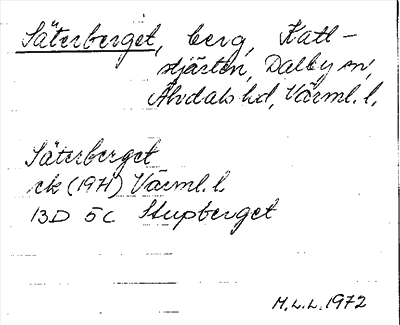 Säterberget, berg, Katt-
stjärten, Dalby sn,
Älvdals hd, Värml. l.
Säterberget
ek (1971) Värml. l.
13D 5C Stupberget
M.L.L. 1972